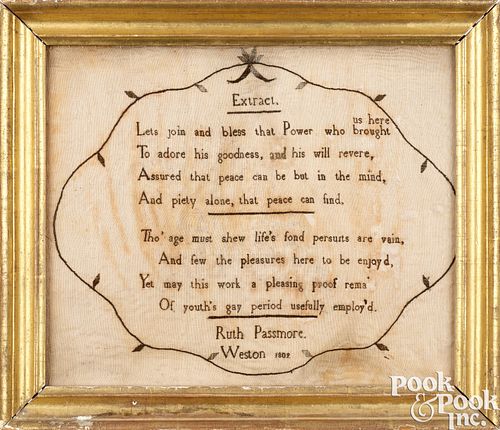 Extract.
us here
Lets join and bless that Power who brought
To adore his goodness, and his will revere,
Assured that peace can be but in the mind,
And piety alone, that peace can find.
Tho' age must shew life's fond persuits are vain,
And few the pleasures here to be enjoy'd,
Yet may this work a pleasing proof rema'
Of youth's gay period usefully employ'd.
Ruth Passmore.
Weston 1802
Pook
& Pook
Inc.